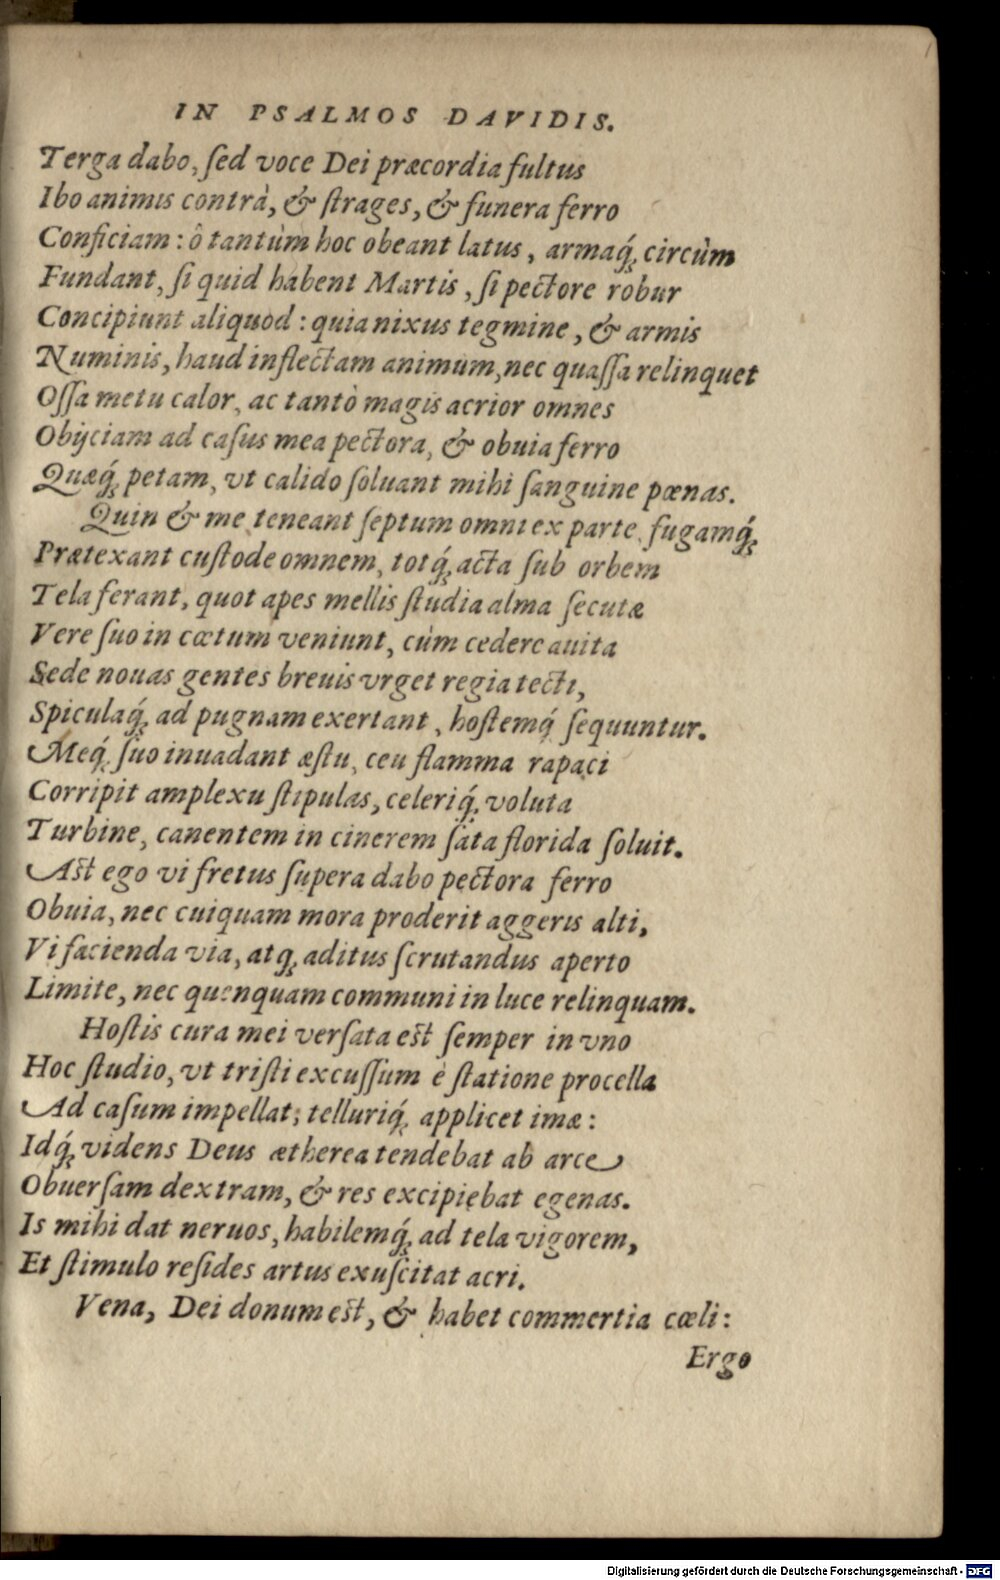 IN PSALMOS DAVIDIS.
Terga dabo, ſed voce Dei præcordia fultus
Ibo animis contrà, & ſtrages, & funera ferro
Conficiam : ô tantùm hoc obeant latus, armaq́; circùm
Fundant, ſi quid habent Martis, ſi pectore robur
Concipiunt aliquod : quia nixus tegmine, & armis
Numinis, haud inflectam animum, nec quaſſa relinquet
Oſſa metu calor, ac tantò magis acrior omnes
Obijciam ad caſus mea pectora, & obuia ferro
Quæq́; petam, vt calido ſoluant mihi ſanguine pœnas.
Quin & me teneant ſeptum omni ex parte, fugamq́;
Prætexant cuſtode omnem, totq́; acta ſub orbem
Tela ferant, quot apes mellis ſtudia alma ſecutæ
Vere ſuo in cœtum veniunt, cùm cedere auita
Sede nouas gentes breuis vrget regia tecti,
Spiculaq́; ad pugnam exertant, hoſtemq́; ſequuntur.
Meq́; ſuo inuadant æſtu, ceu flamma rapaci
Corripit amplexu ſtipulas, celeriq́; voluta
Turbine, canentem in cinerem ſata florida ſoluit.
Aſt ego vi fretus ſupera dabo pectora ferro
Obuia, nec cuiquam mora proderit aggeris alti,
Vi facienda via, atq; aditus ſcrutandus aperto
Limite, nec quenquam communi in luce relinquam.
Hoſtis cura mei verſata eſt ſemper in vno
Hoc ſtudio, vt triſti excuſſum è ſtatione procella
Ad caſum impellat, telluriq́; applicet imæ :
Idq́; videns Deus ætherea tendebat ab arce
Obuerſam dextram, & res excipiebat egenas.
Is mihi dat neruos, habilemq́; ad tela vigorem,
Et ſtimulo reſides artus exuſcitat acri.
Vena, Dei donum eſt, & habet commertia cœli :
Ergo
Digitalisierung gefördert durch die Deutsche Forschungsgemeinschaft - DFG